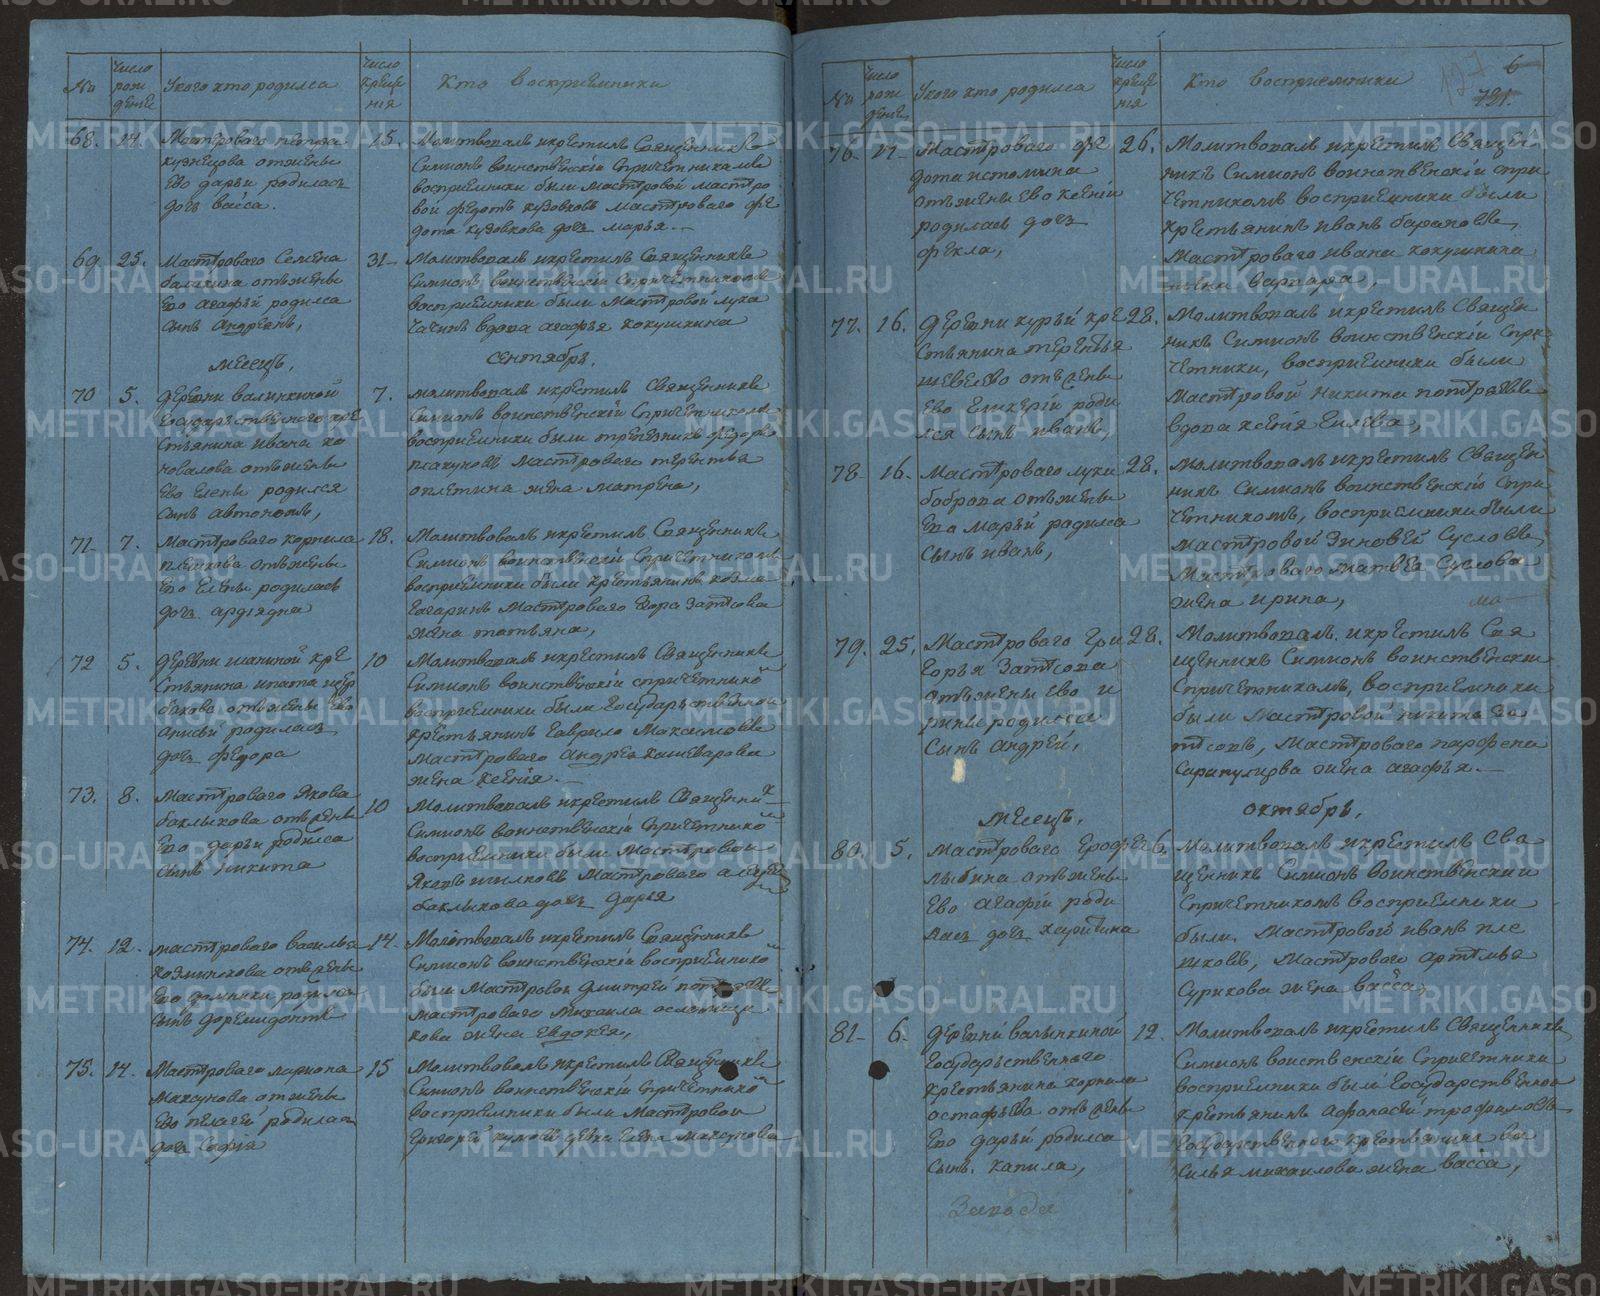 №
Число рождение
Укого кто родился
Число крещения
Кто восприемники
68. 14. Мастерового петра
кузнецова отжены
Ево дарьи родилась
дочь васса.
15. Молитвовалъ икрестилъ Священникъ
Симионъ воинственскій Спричетникомъ
восприемники были мастеровой мастеро
вой федотъ кузовковъ мастероваго фе
дота кузовкова дочь марья.
69. 25. Мастероваго Семена
балакина отъжены
Ево агафьи родился
сынъ Андреянъ,
31 Молитвовалъ икрестилъ Священникъ
Симионъ воинственскій Спричетникомъ
восприемники были Мастеровой лука
вдова агафья кокушкина
Месецъ, Сентябрь,
70 5. Деревни валинкиной
Государственного кре
стьянина ивана ко
новалова отъжены
Ево Елены родился
сынъ автономъ,
7. молитвовалъ икрестилъ Священникъ
Симионъ воинственскій Спричетникомъ
восприемники были федоръ
плакуновъ мастероваго терентья
оплетина жена матрена,
71 7. Мастероваго корнила
пешкова отъжены
Ево Елены родилась
дочь
18. Молитвовалъ икрестилъ Священникъ
Симионъ воинственскій Спричетникомъ
восприемники были крестьянинъ козма
гагаринъ мастероваго Егора Затѣсова
жена татьяна,
72 5. Деревни шаниной кре
стьянина ипата щер
бакова отъжены Ево
анисьи родилась
дочь федора
10 Молитвовалъ икрестилъ Священникъ
Симионъ воинственскій спричетнико
восприемники были Государственной
крестьянинъ Гаврило Максимовъ
Мастероваго Андрея кашеварова
жена ксенія.
73. 8. Мастероваго Якова
баклыкова отъжены
Ево дарьи родился
сынъ никита
10 Молитвовалъ икрестилъ Священникъ
Симионъ воинственскій Спричетнико
восприемники были мастеровой
Яковъ шилковъ Мастероваго
баклыкова дочь дарья
74. 12. мастероваго василья
кожевникова отъжены
Ево домники родился
сынъ доремидонтъ
14. Молитвовалъ икрестилъ Священникъ
Симионъ воинственскій восприемнико
были Мастеровой дмитрей потеряевъ
мастероваго михаила
жена Евдокея,
75. 14. Мастероваго лариона
Максунова отжены
Ево пелагеи родилась
дочь Софія
15 Молитвовалъ икрестилъ Священникъ
Симионъ воинственскій Спричетнико
восприемники были Мастеровой
Григорей девка Елена максунова
№
Число рождение
Укого кто родился
Число крещения
Кто восприемники
127
6
731.
76. Мастероваго фе
дота истомина
отъжены Ево ксеніи
родилась дочь
фекла,
26. Молитвовалъ икрестилъ Священ
никъ Симионъ воинственскій спри
четникомъ восприемники были
крестьянинъ иванъ барановъ
мастероваго ивана кокушкина
жена варвара,
77. 16. Деревни курьи кре
стьянина терентья
шевелево отъжены
Ево Гликеріи роди
лся сынъ иванъ,
28. Молитвовалъ икрестилъ Священ
никъ Симионъ воинственскій Спри
четники, восприемники были
мастеровой Никита потеряевъ
вдова ксенія Гилева,
78. 16. Мастероваго луки
боброва отъжены
Ево марьи родился
сынъ иванъ,
28. Молитвовалъ икрестилъ Священ
никъ Симионъ воинственскій Спри
четникомъ, восприемники были
мастеровой Зиновей Сусловъ
мастероваго матвея Суслова
жена ирина,
ма
79. 25. Мастероваго Гри
горья Затѣсова
отъжены ево и
рины родился
Сынъ Андрей,
28. Молитвовалъ икрестилъ Свя
щенникъ Симионъ воинственскій
Спричетникомъ, восприемники
были Мастеровой никита За
тѣсовъ, Мастероваго парфена
Сарапулцова жена агафья.
Месецъ, Октябрь,
80. 5. Мастероваго Ерофея
лыбина отъжены
Ево агафіи роди
лась дочь харитина
6. Молитвовалъ икрестилъ Свя
щенникъ Симионъ воинственскій
Спричетникомъ восприемники
были Мастеровой иванъ пле
шковъ, Мастероваго артемья
Сурикова жена васса,
81 6. Деревни валинкиной
Государственнаго
крестьянина корнила
остафьева отъжены
Ево дарьи родился
сынъ капила,
12. Молитвовалъ икрестилъ Священникъ
Симионъ воинственскій Спричетники
восприемники были Государственной
крестьянинъ афанасей трофимовъ
Государственнаго крестьянина ва
силья михаилова жена васса,
Завода
METRIKI.GASO-URAL.RU